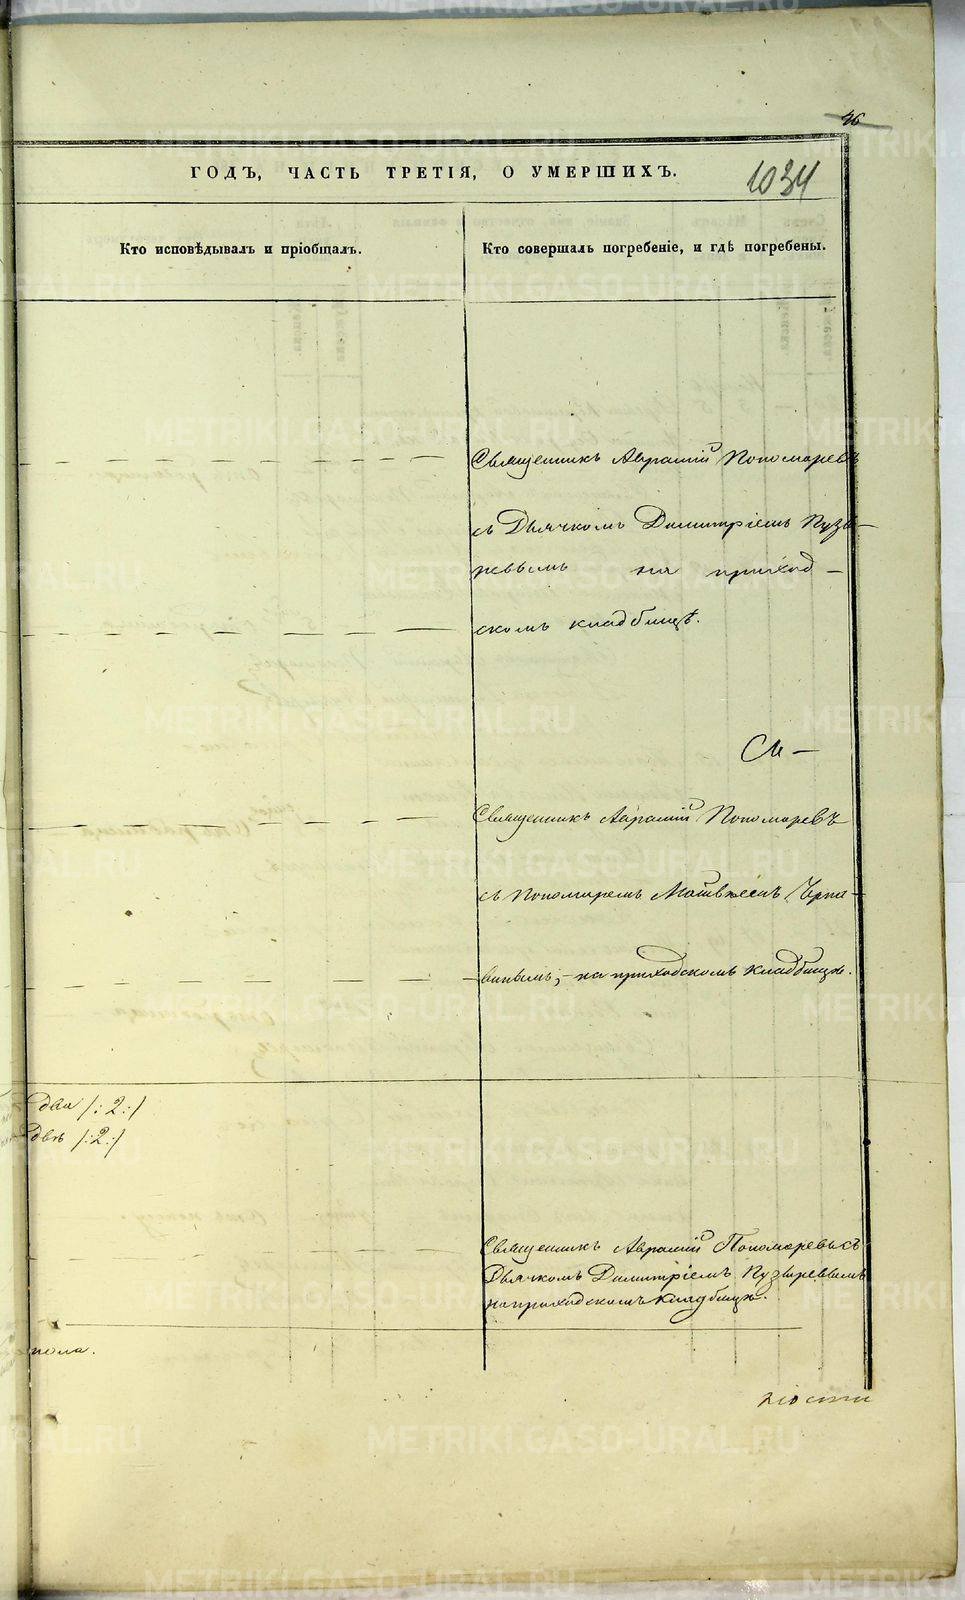 46
ГОДЪ, ЧАСТЬ ТРЕТІЯ, О УМЕРШИХЪ.
1034
Кто исповѣдывалъ и пріобщалъ.
Кто совершалъ погребеніе, и гдѣ погребены.
Священникъ Аврамій Пономаревъ
съ Дьячкомъ Димитріемъ Пузы-
ревымъ на приход-
скомъ кладбищѣ.
См-
Священникъ Аврамій Пономаревъ
съ Пономаремъ Матвѣемъ Черна-
винымъ, - на приходскомъ кладбищѣ.
два /:2:/
двѣ /:2:/
Священникъ Аврамій Пономаревъ съ
Дьячкомъ Димитріемъ Пузыревымъ
на приходскомъ кладбищѣ.
пола.
METRIKI.GASO-URAL.RU